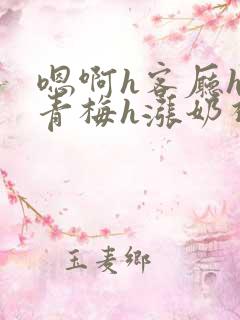 嗯啊h客厅h
青梅h涨奶
玉麦乡